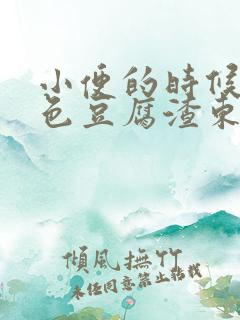 小便的時候
色豆腐渣東
傾風撫竹
未经同意禁止转载